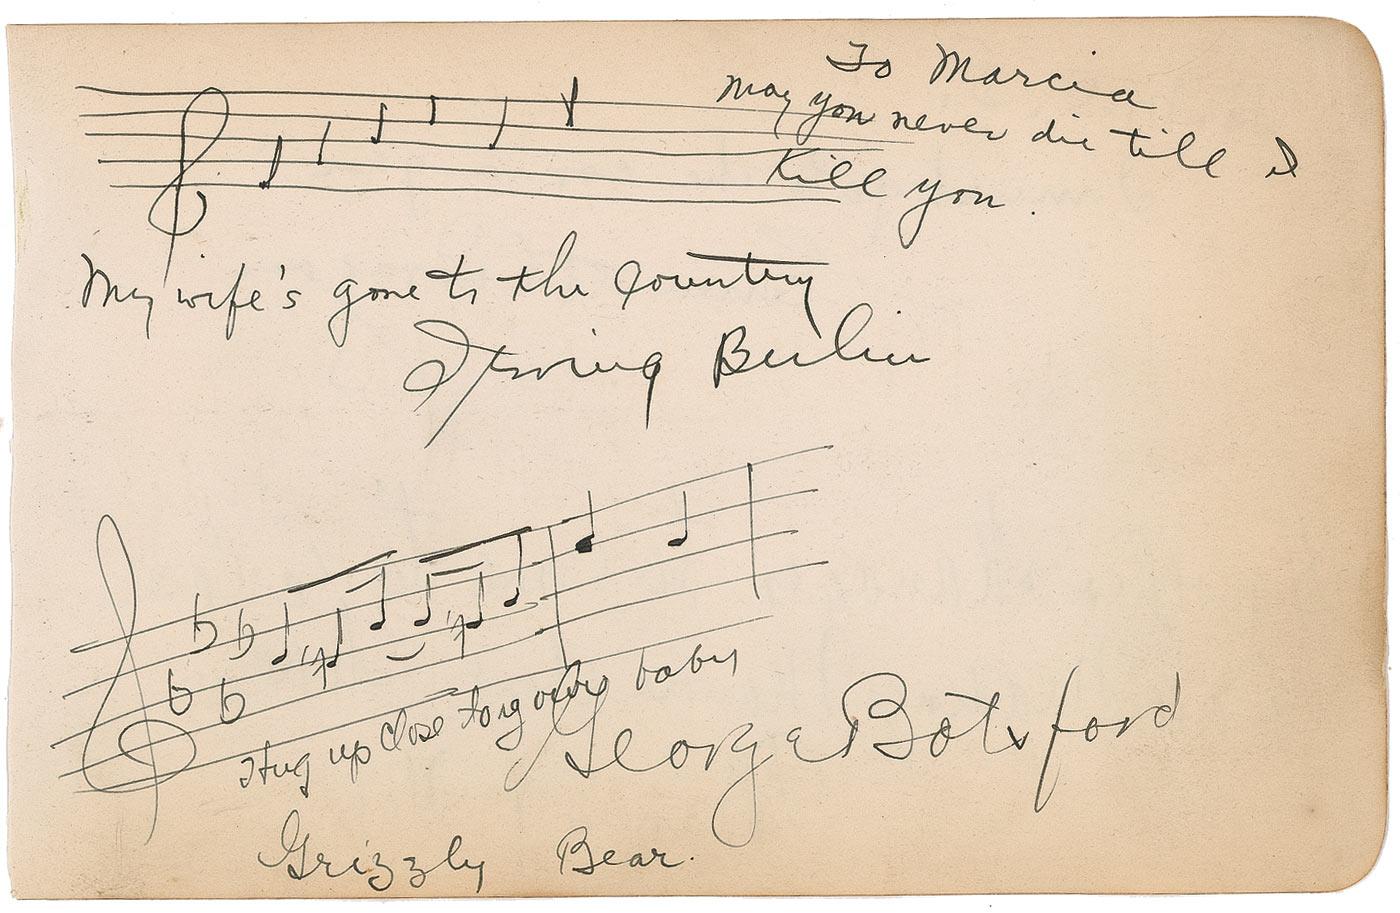 To Marcia
May you never die till I
Kill you.
My wife's gone to the Country
Irving Berlin
Hug up close to your baby
George Botsford
Grizzly Bear.